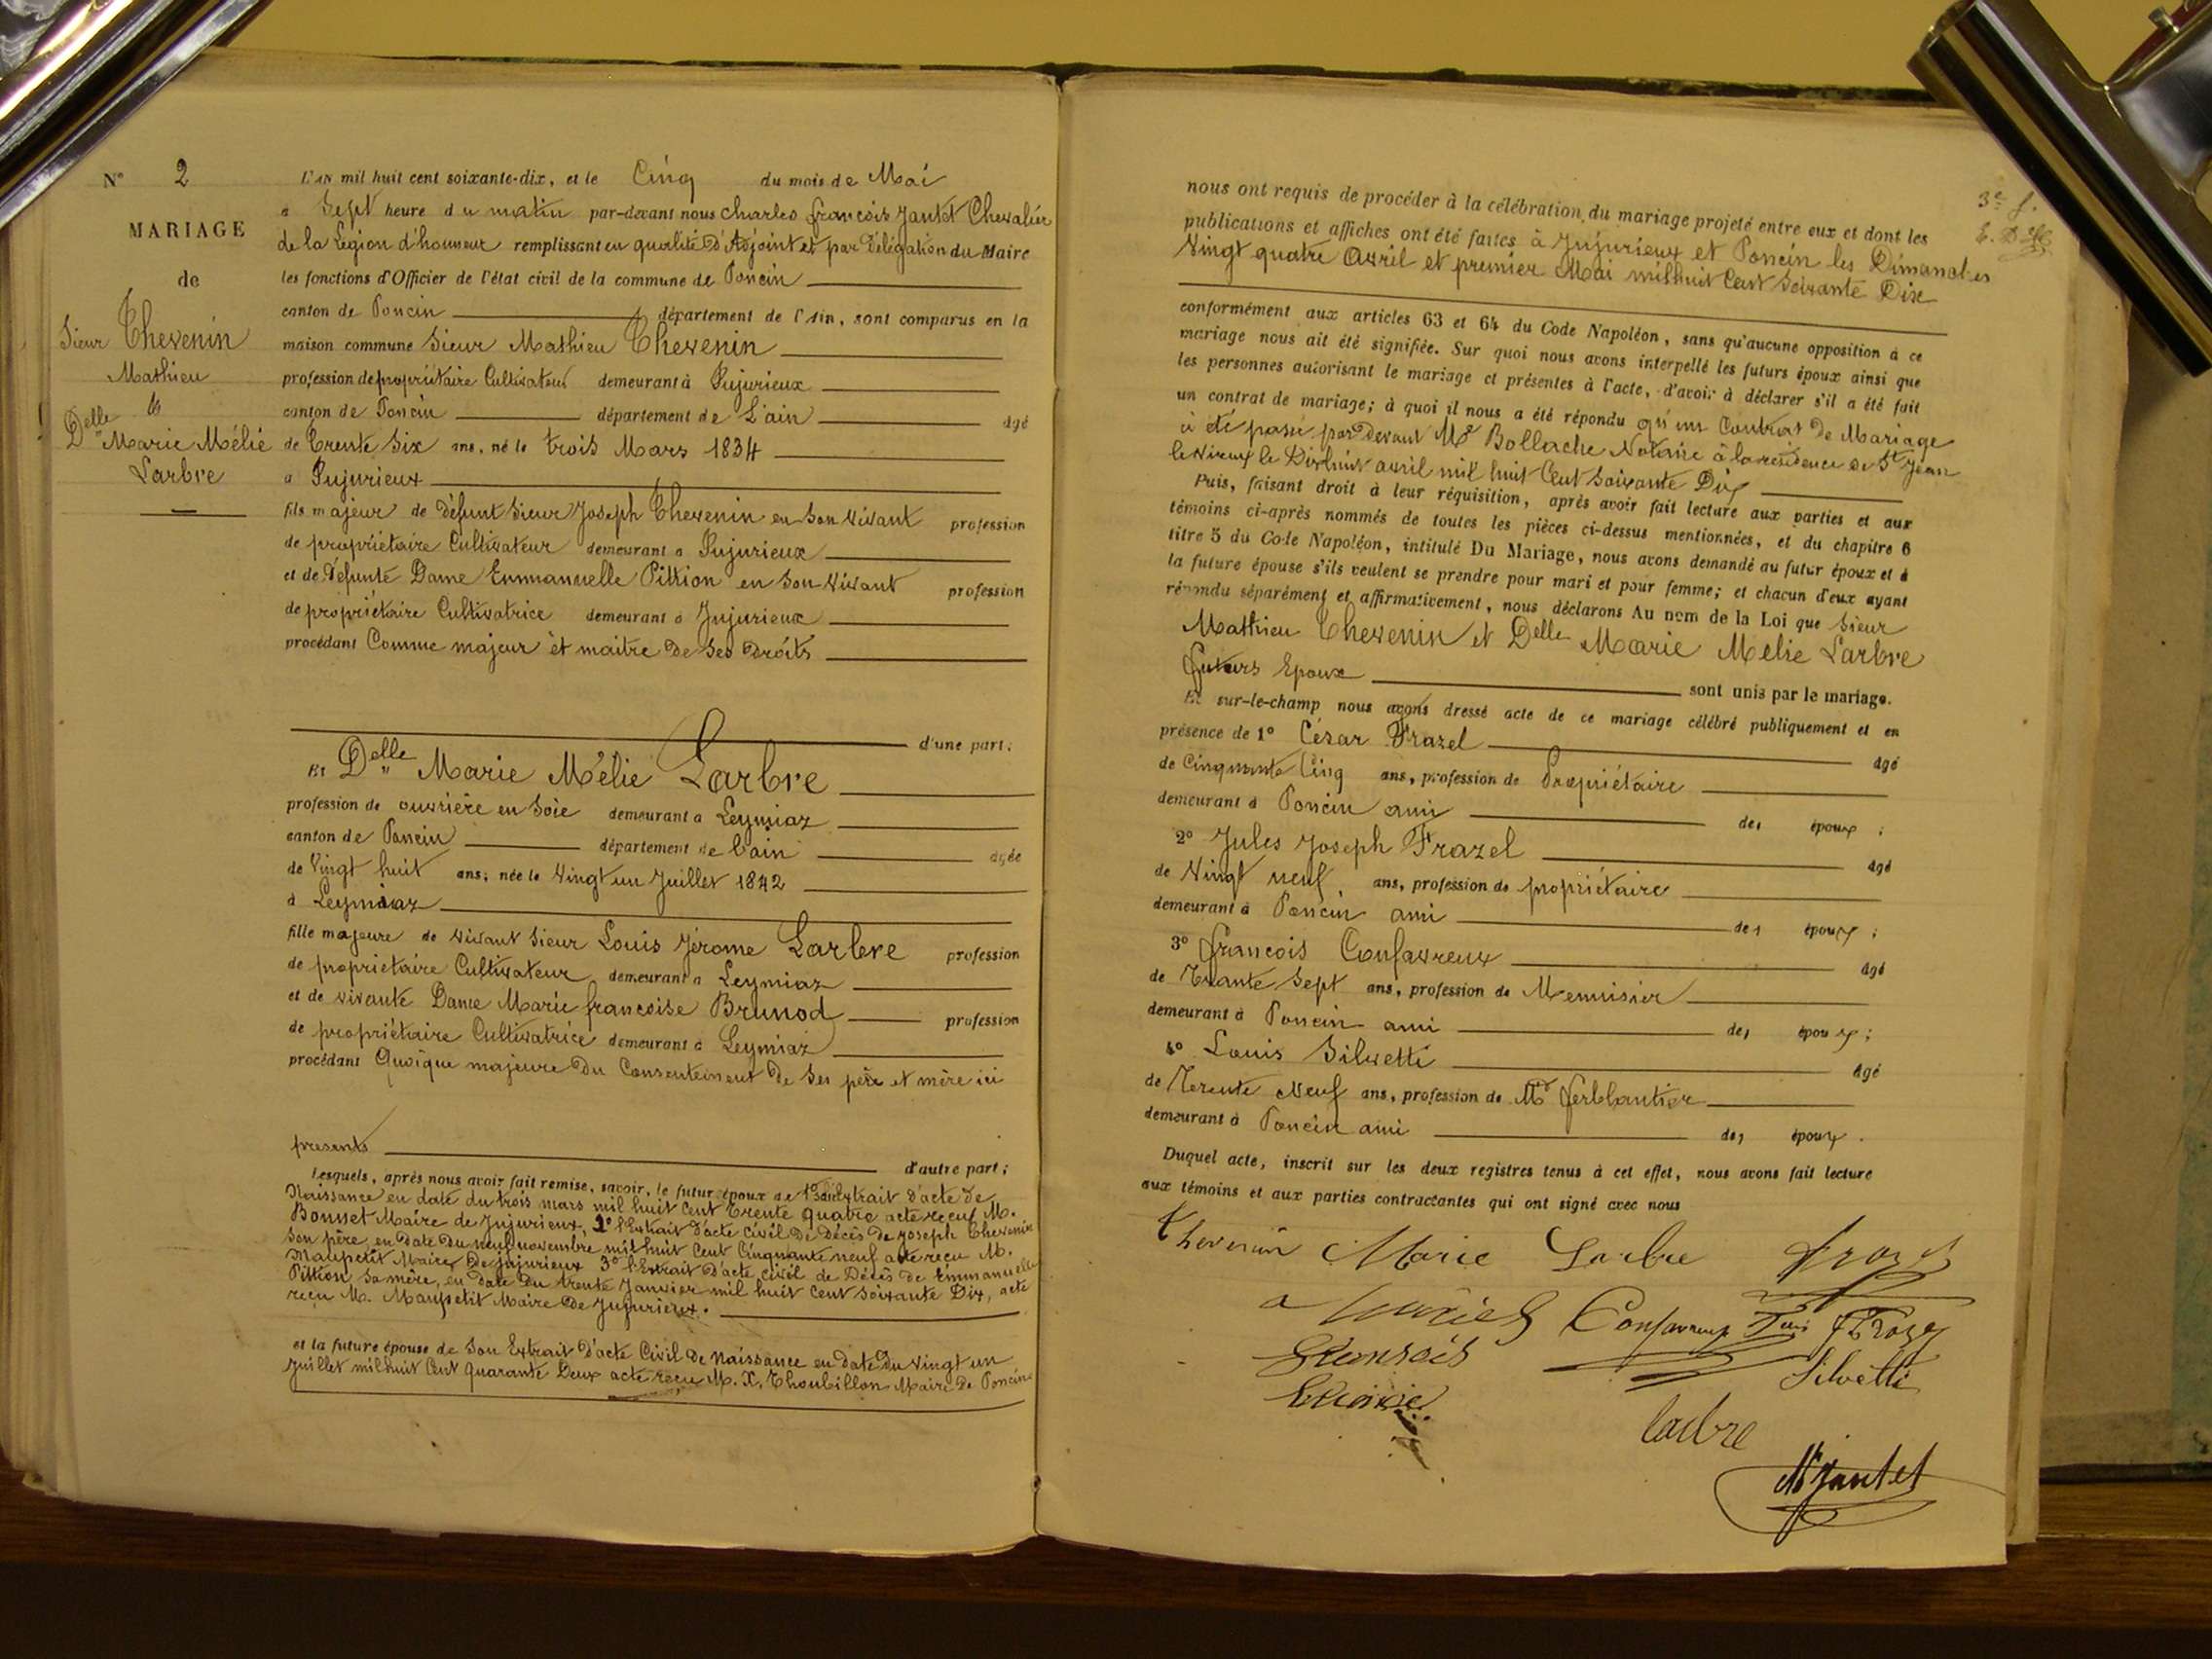 N° 2
MARIAGE
de
Sieur Thevenin
Mathieu
&
Delle Marie Mélie
Larbre
L'AN mil huit cent soixante-dix, et le Cinq du mois de Mai
a Sept heure du matin par-devant nous Charles françois Jantet Chevalier
de la Légion d'honneur remplissant en qualité D'Adjoint et par Délégation du Maire
les fonctions d'Officier de l'état civil de la commune de Poncin
canton de Poncin département de l'Ain, sont comparus en la
maison commune Sieur Mathieu Thevenin
profession de propriétaire Cultivateur demeurant à Jujurieux
canton de Poncin département de L'ain âgé
de Trente Six ans, né le trois Mars 1834
a Jujurieux
fils majeur de défunt Sieur Joseph Thevenin en Son Vivant profession
de propriétaire Cultivateur demeurant a Jujurieux
et de Défunte Dame Emmanuelle Pittion en Son Vivant profession
de propriétaire Cultivatrice demeurant à Jujurieux
procédant Comme majeur et maitre de Ses Droits
d'une part;
Et Delle Marie Mélie Larbre
profession de ouvrière en Soie demeurant a Leymiaz
canton de Poncin département de l'ain âgée
de Vingt huit ans; née le Vingt un Juillet 1842
à Leymiaz
fille majeure de vivant Sieur Louis Jérome Larbre profession
de propriétaire Cultivateur demeurant a Leymiaz
et de vivante Dame Marie françoise Brunod profession
de propriétaire Cultivatrice demeurant à Leymiaz
procédant Quoique majeure Du Consentement de Ses père et mère ici
presents d'autre part;
Lesquels, après nous avoir fait remise, savoir, le futur époux de 1° Son Extrait d'acte de
Naissance en date du trois mars mil huit Cent Trente quatre acte reçu M.
Bonnet Maire de Jujurieux, 2° l'Extrait D'acte civil De Décès de Joseph Thevenin
Son père, en Date Du neuf novembre mil huit Cent Cinquante neuf acte reçu M.
Maupetit Maire De Jujurieux 3° l'Extrait D'acte civil de Décès de Emmanuelle
Pittion Sa mère, en Date Du trente Janvier mil huit Cent Soixante Dix, acte
reçu M. Maupetit Maire de Jujurieux.
et la future épouse de Son Extrait D'acte Civil De Naissance en date Du Vingt un
Juillet mil huit Cent quarante Deux acte reçu M. X. Thoubillon Maire De Poncin
3e f.
nous ont requis de procéder à la célébration du mariage projeté entre eux et dont les
publications et affiches ont été faites à Jujurieux et Poncin les Dimanches
Vingt quatre Avril et premier Mai mil huit Cent Soixante Dix
conformément aux articles 63 et 64 du Code Napoléon, sans qu'aucune opposition à ce
mariage nous ait été signifiée. Sur quoi nous avons interpellé les futurs époux ainsi que
les personnes autorisant le mariage et présentes à l'acte, d'avoir à déclarer s'il a été fait
un contrat de mariage; à quoi il nous a été répondu qu'un Contrat De Mariage
à été passé par Devant Me Bollache Notaire à la résidence de St Jean
le Vieux le Dix huit avril mil huit Cent Soixante Dix
Puis, faisant droit à leur réquisition, après avoir fait lecture aux parties et aux
témoins ci-après nommés de toutes les pièces ci-dessus mentionnées, et du chapitre 6
titre 5 du Code Napoléon, intitulé Du Mariage, nous avons demandé au futur époux et à
la future épouse s'ils veulent se prendre pour mari et pour femme; et chacun d'eux ayant
répondu séparément et affirmativement, nous déclarons Au nom de la Loi que Sieur
Mathieu Thevenin et Delle Marie Melie Larbre
futurs Epoux sont unis par le mariage.
Et sur-le-champ nous avons dressé acte de ce mariage célébré publiquement et en
présence de 1° César Frazel âgé
de Cinquante Cinq ans, profession de Propriétaire
demeurant à Poncin ami des époux;
2° Jules Joseph Frazel âgé
de Vingt neuf ans, profession de propriétaire
demeurant à Poncin ami des époux;
3° françois Confavreux âgé
de Trante Sept ans, profession de Menuisier
demeurant à Poncin ami des époux;
4° Louis Silvetti âgé
de Terente Neuf ans, profession de Md ferblantier
demeurant à Poncin ami des époux.
Duquel acte, inscrit sur les deux registres tenus à cet effet, nous avons fait lecture
aux témoins et aux parties contractantes qui ont signé avec nous
Thevenin Marie Larbre
Confavreux
Silvetti
larbre
Jantet